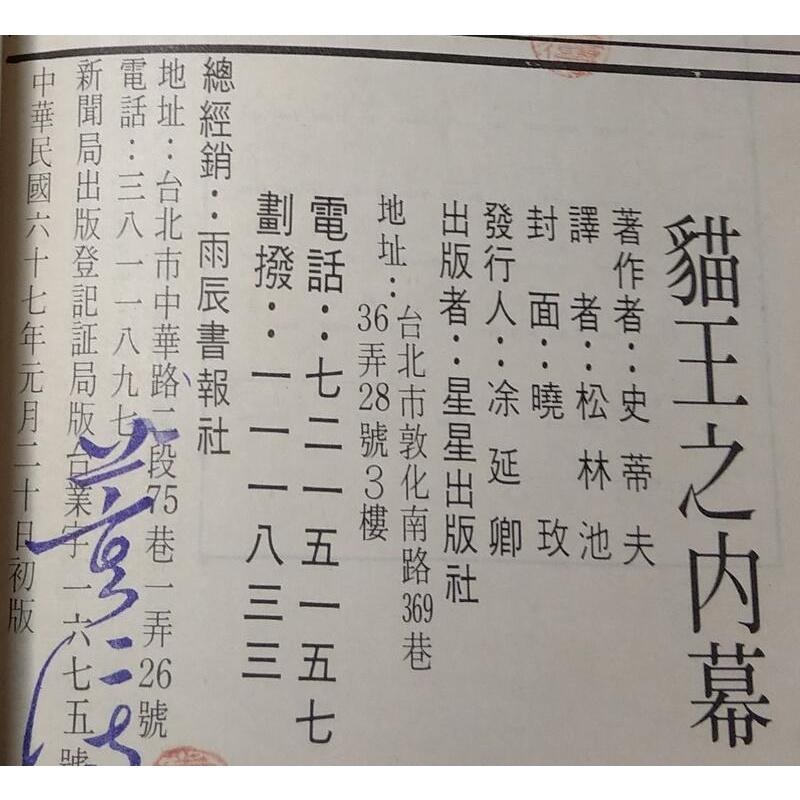 貓王之內幕
著作者：史蒂夫
譯者：松林池
封面：曉玫
發行人：凃延卿
出版者：星星出版社
地址：台北市敦化南路369巷
36弄28號3樓
電話：七二一五一五七
劃撥：一一一八三三
總經銷：雨辰書報社
地址：台北市中華路二段75巷一弄26號
電話：三八一一八九七
新聞局出版登記証局版台業字一六七五號
中華民國六十七年元月二十日初版